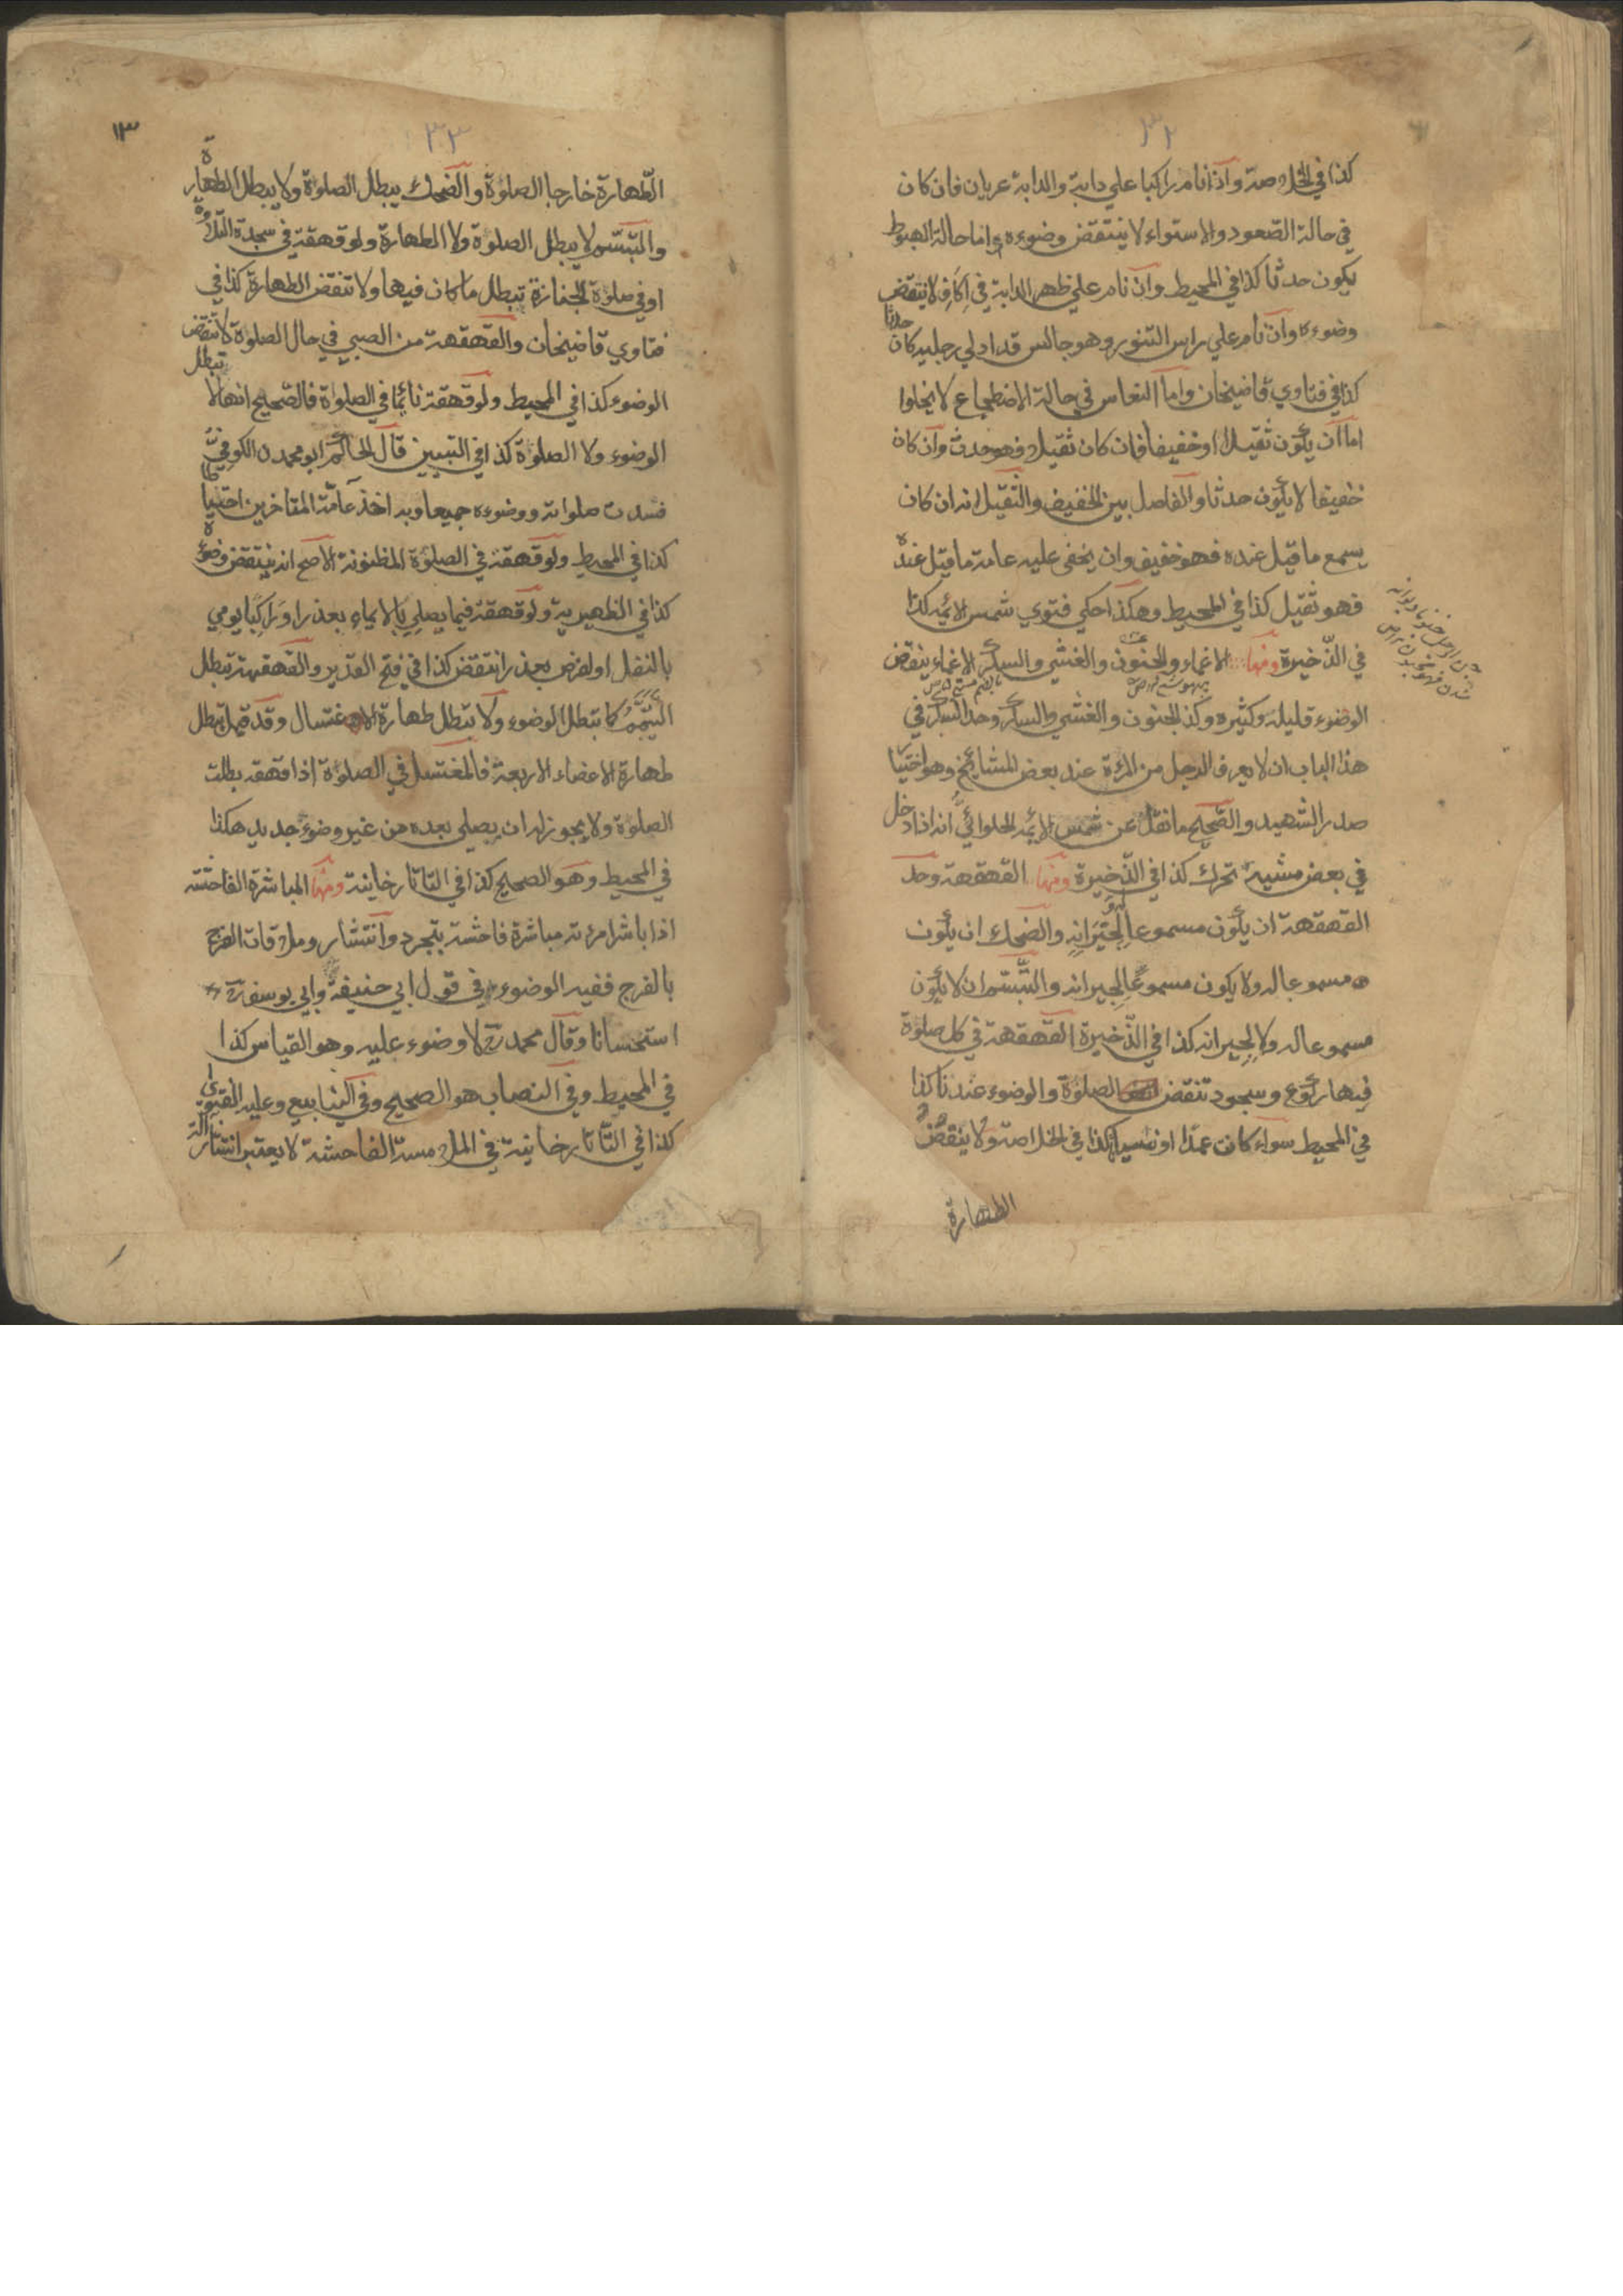 ٣٢
كذا في الخلاصة واذا نام راكبا علي دابة والدابة عريان فان كان
في حالة الصعود والاستواء لا ينتقض وضوءه واما حالة الهبوط
يكون حدثا كذا في المحيط وان نام علي ظهر الدابة في اكاف لا ينتقض
وضوءه وان نام علي راس التنور وهو جالس قد ادلي رجليه كان حدثا
كذا في فتاوي قاضيخان واما النعاس في حالة الاضطجاع لا يخلوا
اما ان يكون ثقيلا او خفيفا فان كان ثقيلا فهو حدث وان كان
خفيفا لا يكون حدثا والفاصل بين الخفيف والثقيل انه ان كان
يسمع ما قيل عنده فهو خفيف وان يخفى عليه عامة ما قيل عنده
فهو ثقيل كذا في المحيط وهكذا حكي فتوي شمس الائمه كذا
في الذخيرة ومنها الاغماء والجنون والغشي والسكر الاغماء ينقض
الوضوء قليله وكثيره وكذا الجنون والغشي والسكر وحد السكر في
هذا الباب ان لا يعرف الرجل من المرءة عند بعض المشائخ وهو اختيا
صدر الشهيد والصحيح ما نقل عن شمس الائمه الحلوائي انه اذا دخل
في بعض مشيه تحرك كذا في الذخيرة ومنها القهقهة وحد
القهقهة ان يكون مسموعا له ولجيرانه والضحك ان يكون
مسموعا له ولا يكون مسموعا لجيرانه والتبسم ان لا يكون
مسموعا له ولا لجيرانه كذا في الذخيرة القهقهة في كل صلوة
فيها ركوع وسجود تنقض الصلوة والوضوء عندنا كذا
في المحيط سواء كانت عمدا او نسيانا كذا في الخلاصة ولا ينقض
الطهارة
٣٣
١٣
الطهارة خارجا الصلوة والضحك يبطل الصلوة ولا يبطل الطهارة
والتبسم لا يبطل الصلوة ولا الطهارة ولو قهقة في سجدة التلاوة
او في صلوة الجنازة تبطل ما كان فيها ولا تنقض الطهارة كذا في
فتاوي قاضيخان والقهقهة من الصبي في حال الصلوة لا تنقض
الوضوء كذا في المحيط ولو قهقة نائما في الصلواة فالصحيح انها لا تبطل
الوضوء ولا الصلوة كذا في التبيين قال الحاكم ابو محمد ن الكوفي
فسدت صلواته ووضوءه جميعا وبه اخذ عامة المتاخرين احتياطا
كذا في المحيط ولو قهقة في الصلوة المظنونة الاصح انه ينتقض وضوءه
كذا في الظهيرية ولو قهقة فيما يصلي بالايماء بعذر او راكبا يومي
بالنفل او لفرض بعذر انتقض كذا في فتح القدير والقهقهة تبطل
التيمم كما تبطل الوضوء ولا تبطل طهارة الاغتسال وقد قيل تبطل
طهارة الاعضاء الاربعة فالمغتسل في الصلوة اذا قهقه بطلت
الصلوة ولا يجوز له ان يصلي بعده من غير وضوء جديد هكذا
في المحيط وهو الصحيح كذا في التاتارخانية ومنها المباشرة الفاحشة
اذا باشر امرءته مباشرة فاحشة بتجرد وانتشار وملاقات الفرج
بالفرج ففيه الوضوء في قول ابي حنيفة وابي يوسف رح
استحسانا وقال محمد رح لا وضوء عليه وهو القياس كذا
في المحيط وفي النصاب هو الصحيح وفي الينابيع وعليه الفتوي
كذا في التاتارخانية في الملامسة الفاحشة لا يعتبر انتشار الته